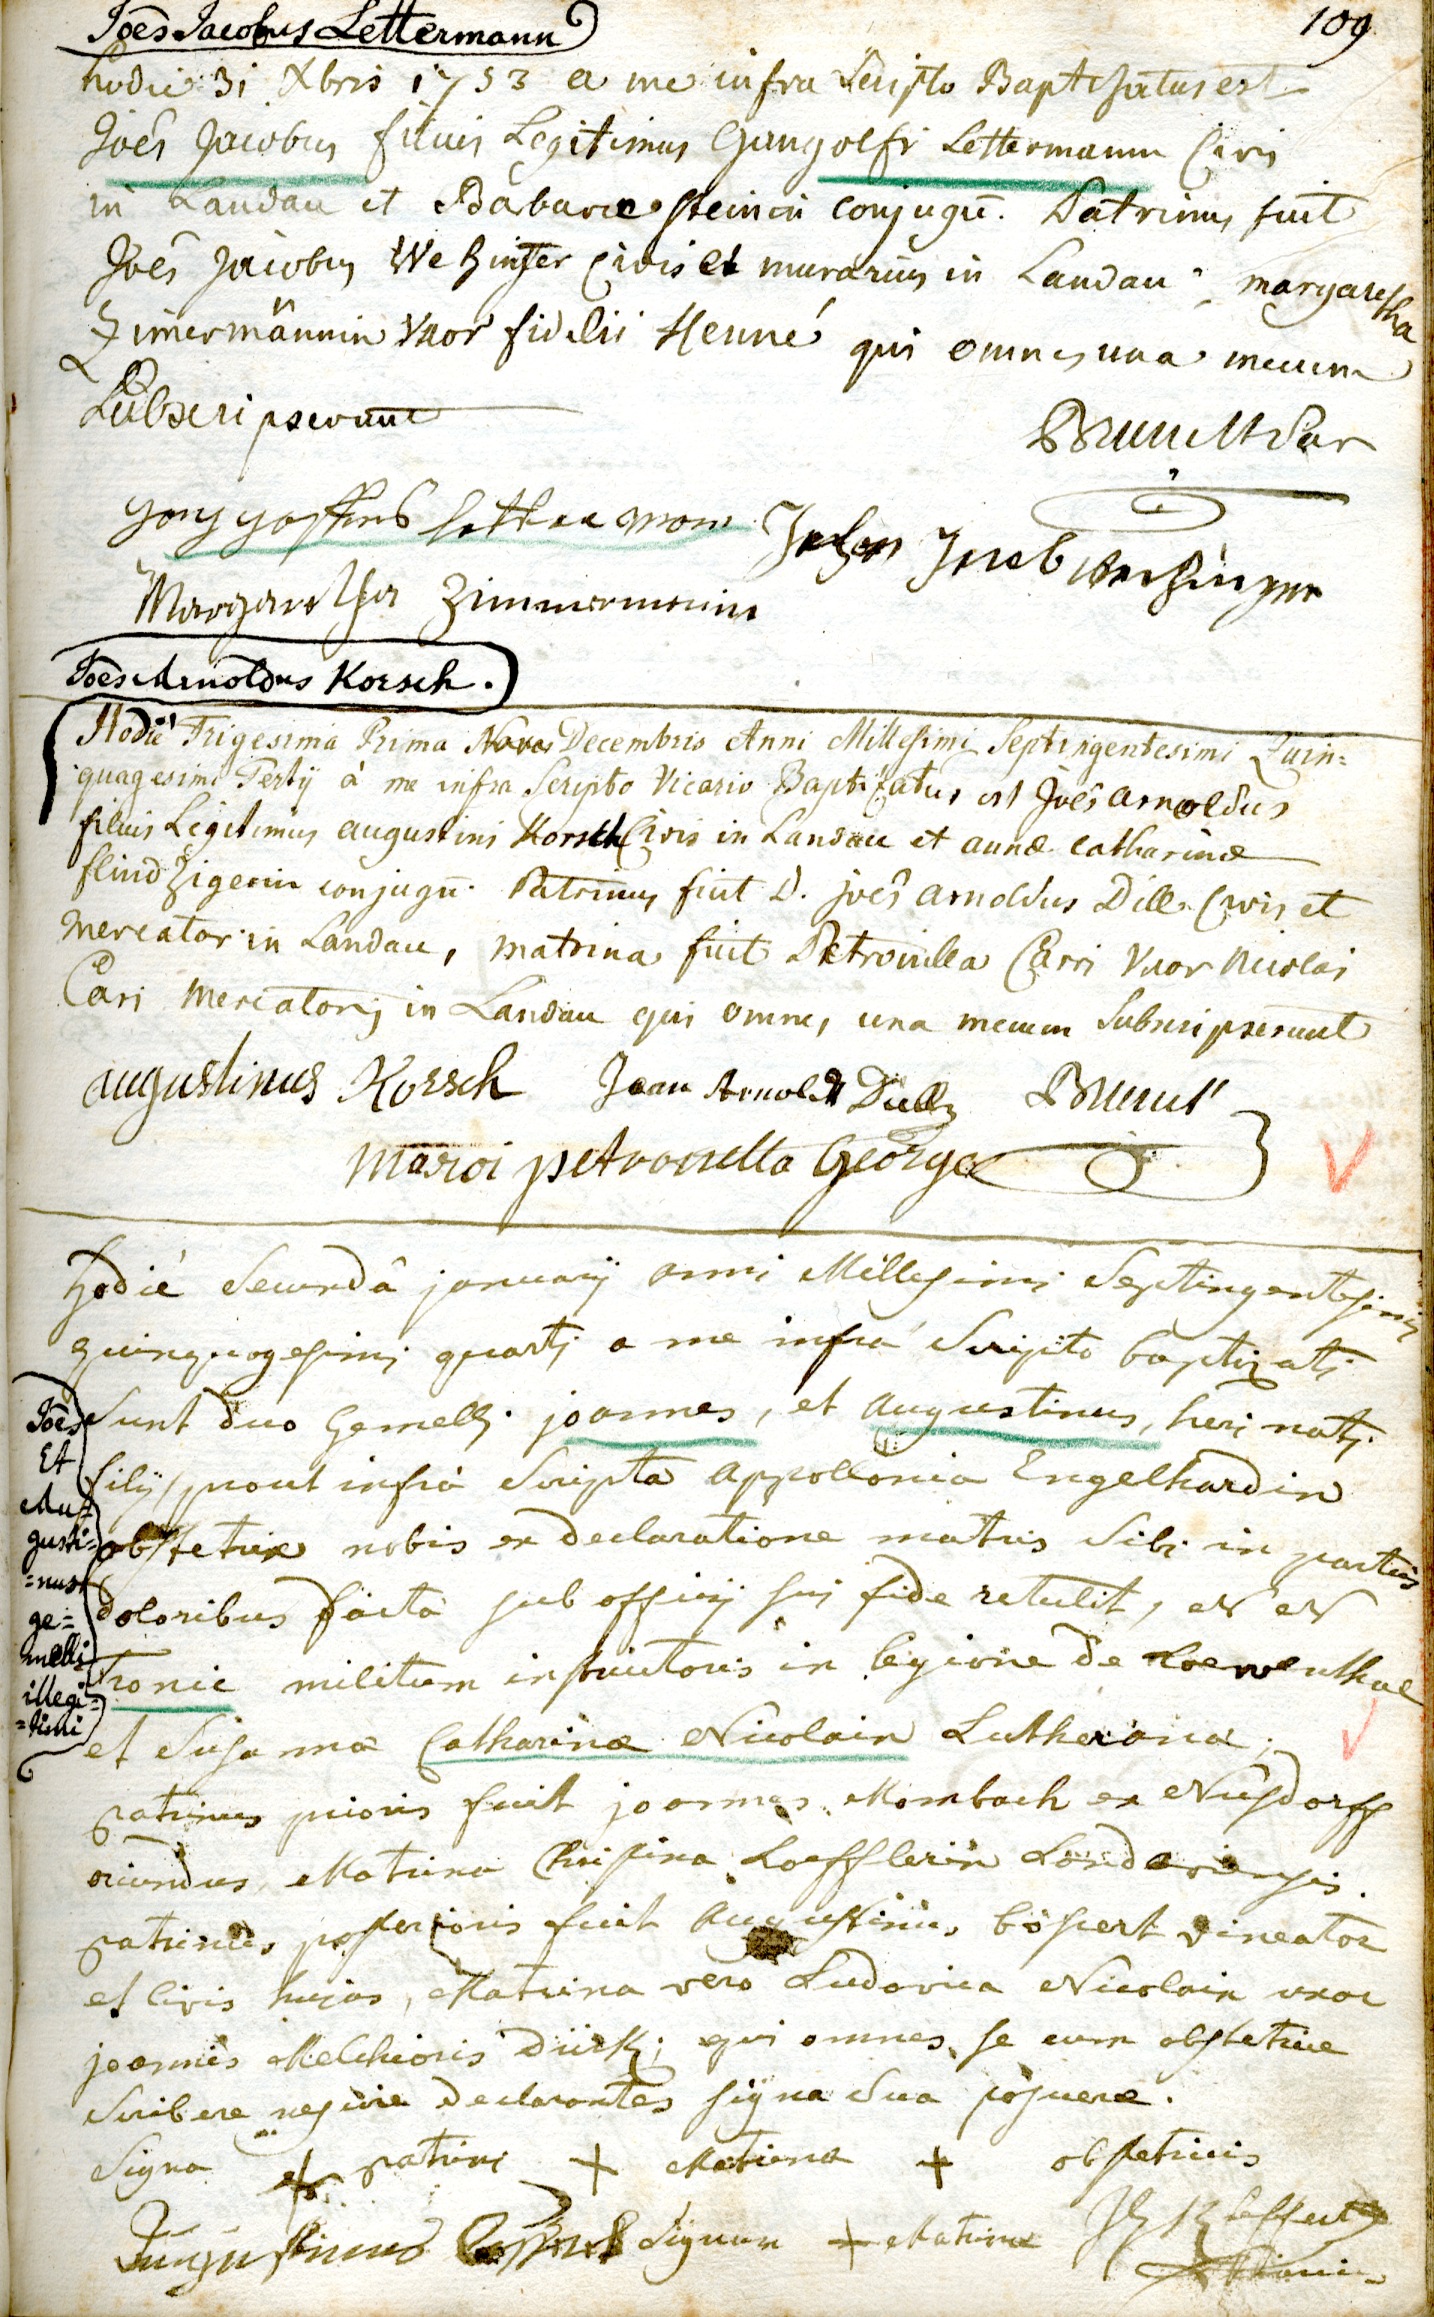 109
Joês Jacobus Lettermann
hodie 31 Xbris 1753 a me infra Scripto Baptisatus est
Joês Jacobus filius Legitimus Gangolfi Lettermann Civis
in Landau et Barbarae Steinin conjugū. Patrinus fuit
Joês Jacobus Wetzinger Civis et murarius in Landau, margaretha
Zimermännin Uxor fidelis Henné qui omnes una mecum
Subscripserunt
Margaretha Zimmermanin
Joês Arnoldus Korsch.
Hodie Trigesima Prima Decembris Anni Millesimi Septingentesimi Quin=
quagesimi Tertij à me infra Scripto Vicario Baptizatus est Joês Arnoldus
filius Legitimus augustini Korsch Civis in Landau et annae catharinae
conjugū. Patrinus fuit D. joês arnoldus Dill Civis et
Mercator in Landau, matrina fuit Petronilla Carri Uxor Nicolai
Cari Mercatoris in Landau qui omnes una mecum Subscripserunt
augustinus Korsch Jean Arnold
petronella George
hodié Secundâ januarij anni Millesimi Septingentesimi
quinquagesimi quarti a me infrá Scripto baptizati
Sunt duo Gemelli joannes, et Augustinus, heri nati
filij prout infrà Scripta Appollonia Engelhardin
obstetrix nobis ex declaratione matris Sibi in partus
doloribus factâ sub officij sui fide retulit, N N
Tronie militum instructoris in legione de Loewenthal
et Susannae Catharinae Nicolain Lutheranae;
patrinus prioris fuit joannes Mombach ex Nusdorff
oriundus, Matrina Christina Loefflerin Landaviensis.
patrinus posterioris fuit Augustinus bossert vineator
et Civis hujas, Matrina vero Ludovica Nicolain uxor
joannis Melchioris Dürk; qui omnes se cum obstetrice
Scribere nescire declarantes signa Sua posuere.
Signa + patrini + Matrinae + obstetricis
Signum + Matrinae
Joês
Et
Au=
gusti=
=nus
ge=
melli
illegi=
=timi